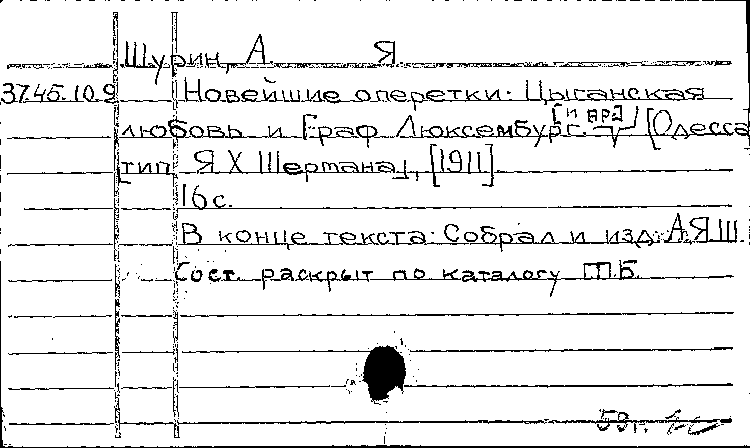 Шурин, А. Я.
37.45.10.9 Новейшие оперетки: Цыганская
любовь и Граф Люксембург. [и др.] [Одесса
тип. Я.Х. Шермана], [1911].
16 с.
В конце текста: Собрал и изд. А.Я.Ш.
Сост. раскрыт по каталогу ГПБ.
59 г.